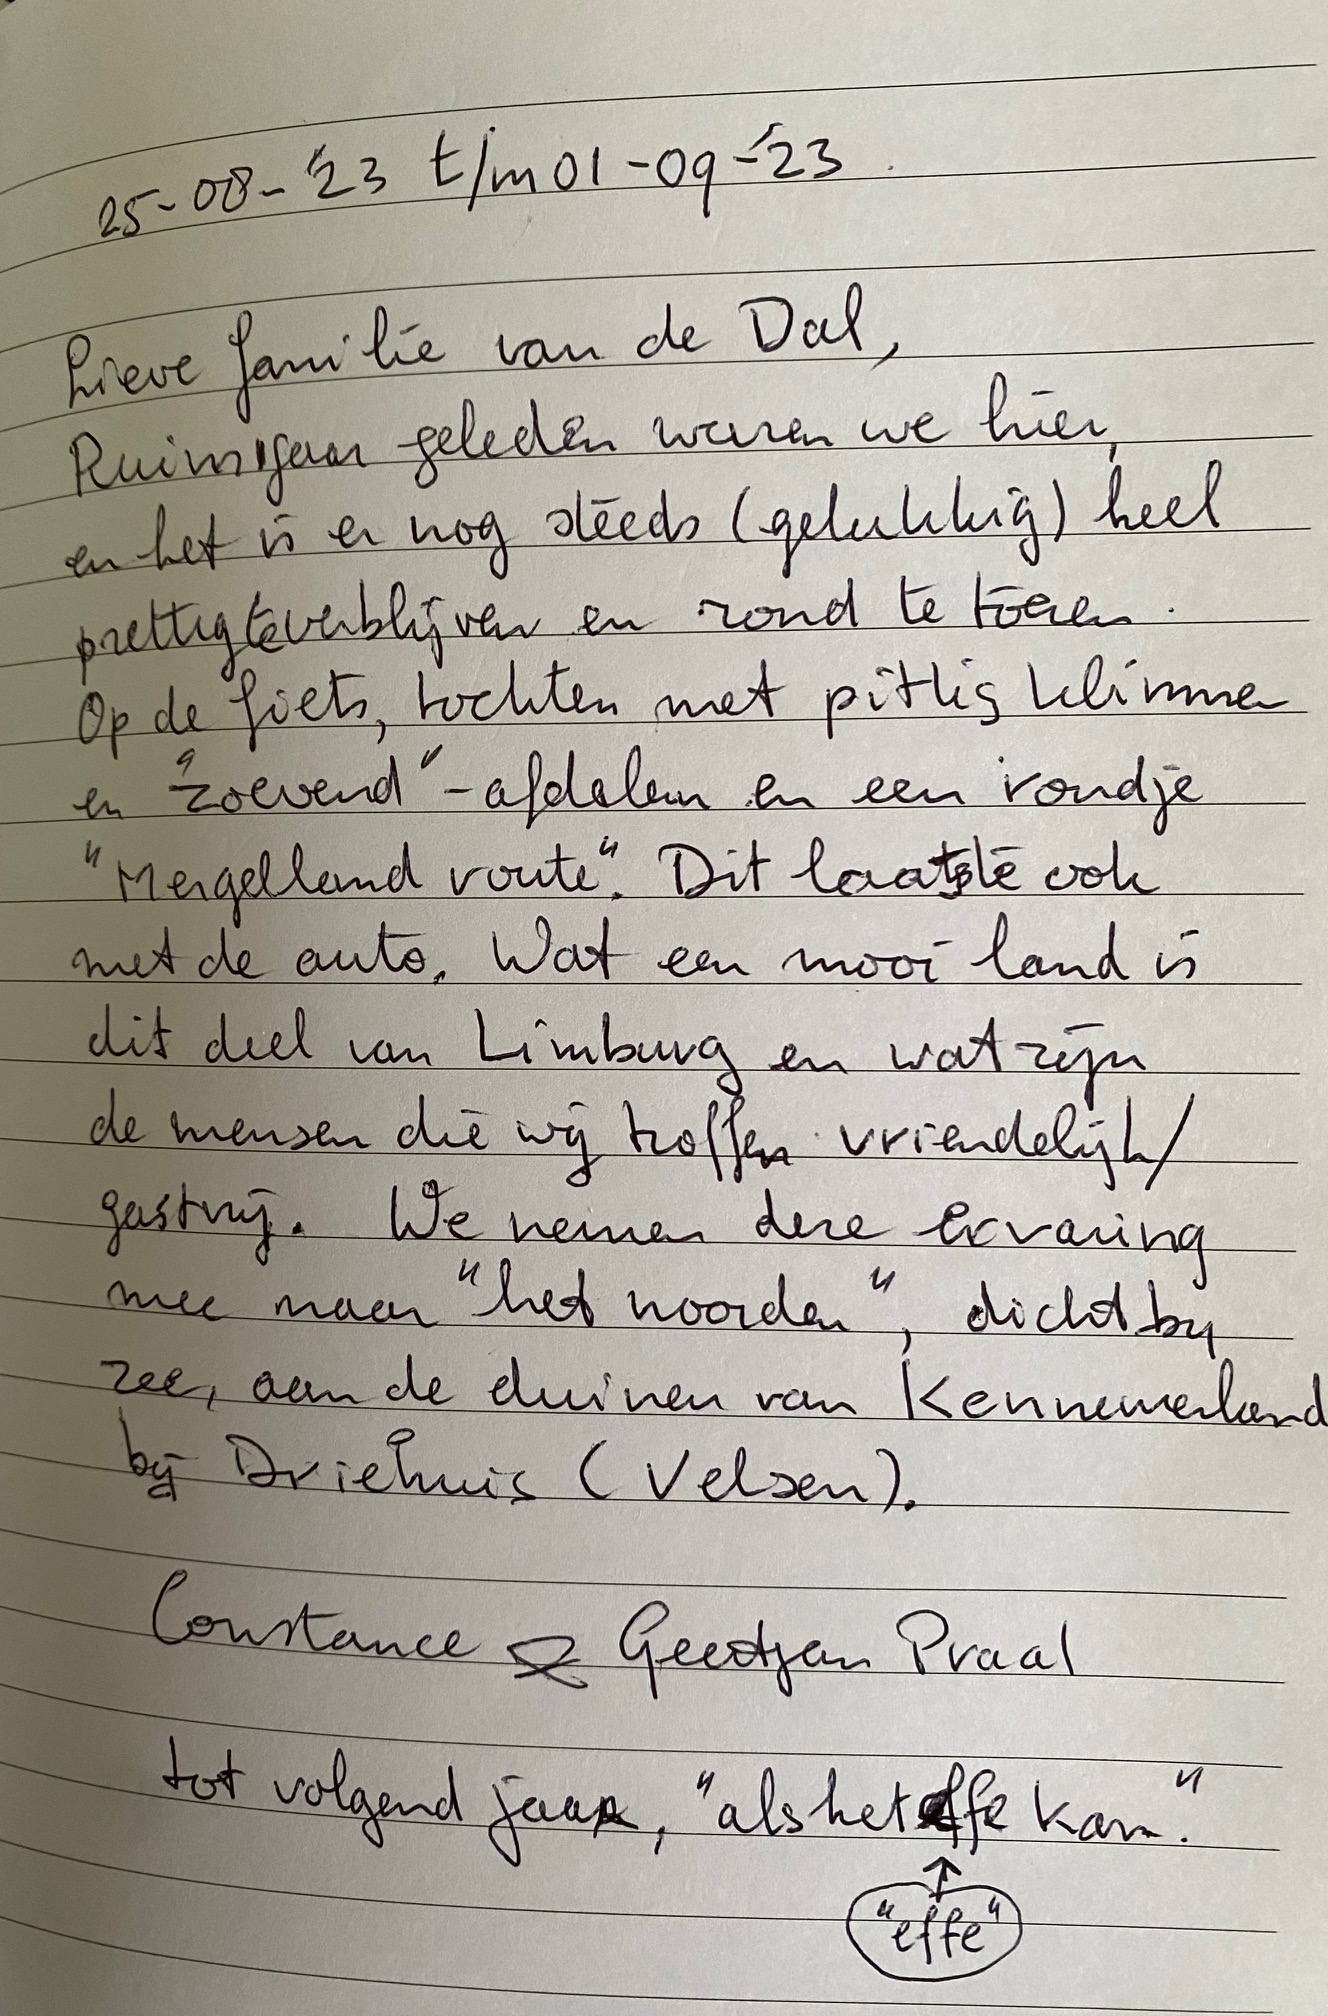 25-08-'23 t/m 01-09-'23.
Lieve familie van de Dal,
Ruim 1 jaar geleden waren we hier,
en het is er nog steeds (gelukkig) heel
prettig te verblijven en rond te toeren.
Op de fiets, tochten met pittig klimmen
en "zoevend"-afdalen en een rondje
"Mergelland route". Dit laatste ook
met de auto. Wat een mooi land is
dit deel van Limburg en wat zijn
de mensen die wij troffen vriendelijk/
gastvrij. We nemen deze ervaring
mee naar "het noorden", dichtbij
zee, aan de duinen van Kennemerland
bij Driehuis (Velsen).
Constance & Geertjan Praal
tot volgend jaar, "als het effe kan."
"effe"